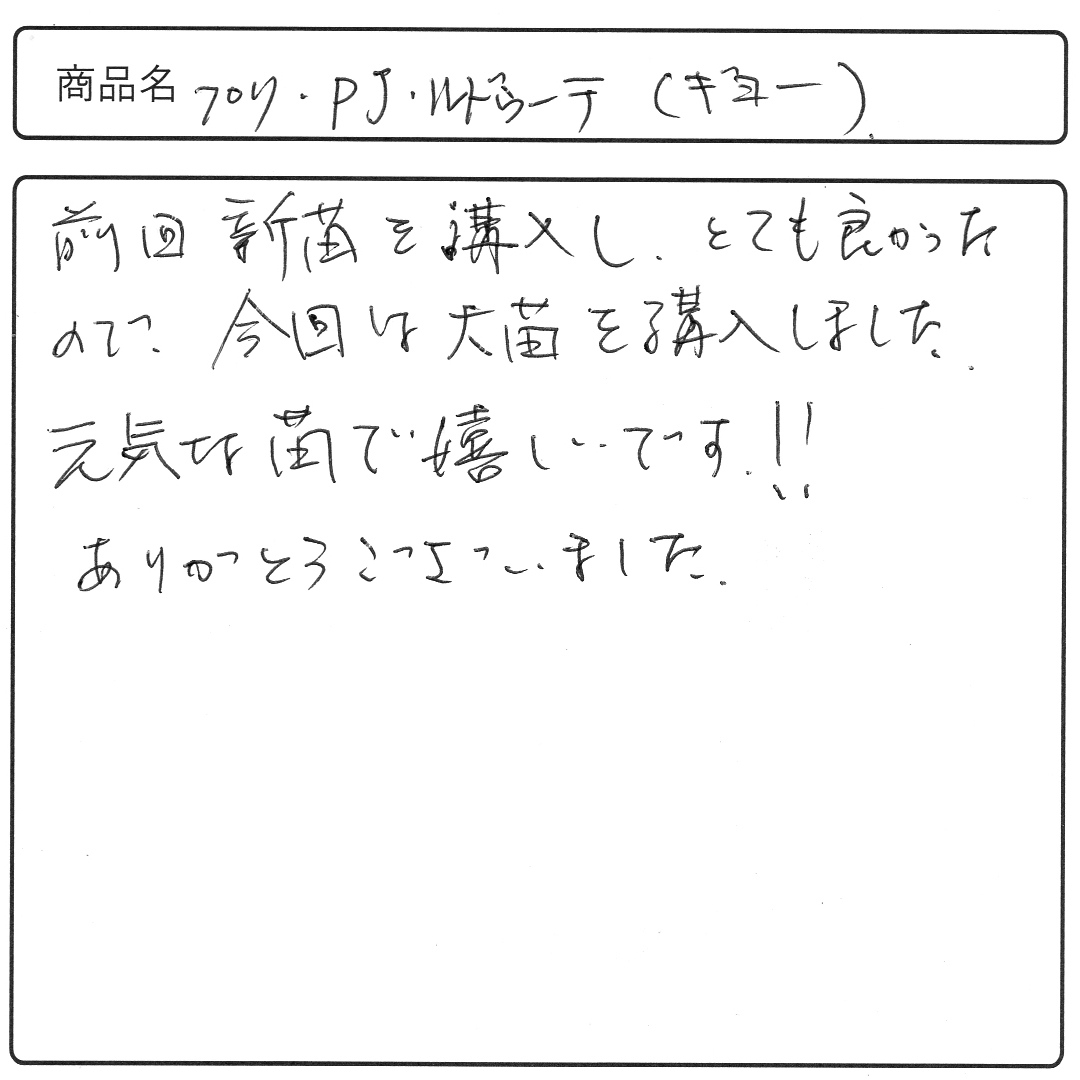 商品名 フロリ・PJ・ルドゥーテ (ギヨー)
前回 新苗を購入し、とても良かった
ので、今回は大苗を購入しました。
元気な苗で嬉しいです!!
ありがとうございました。